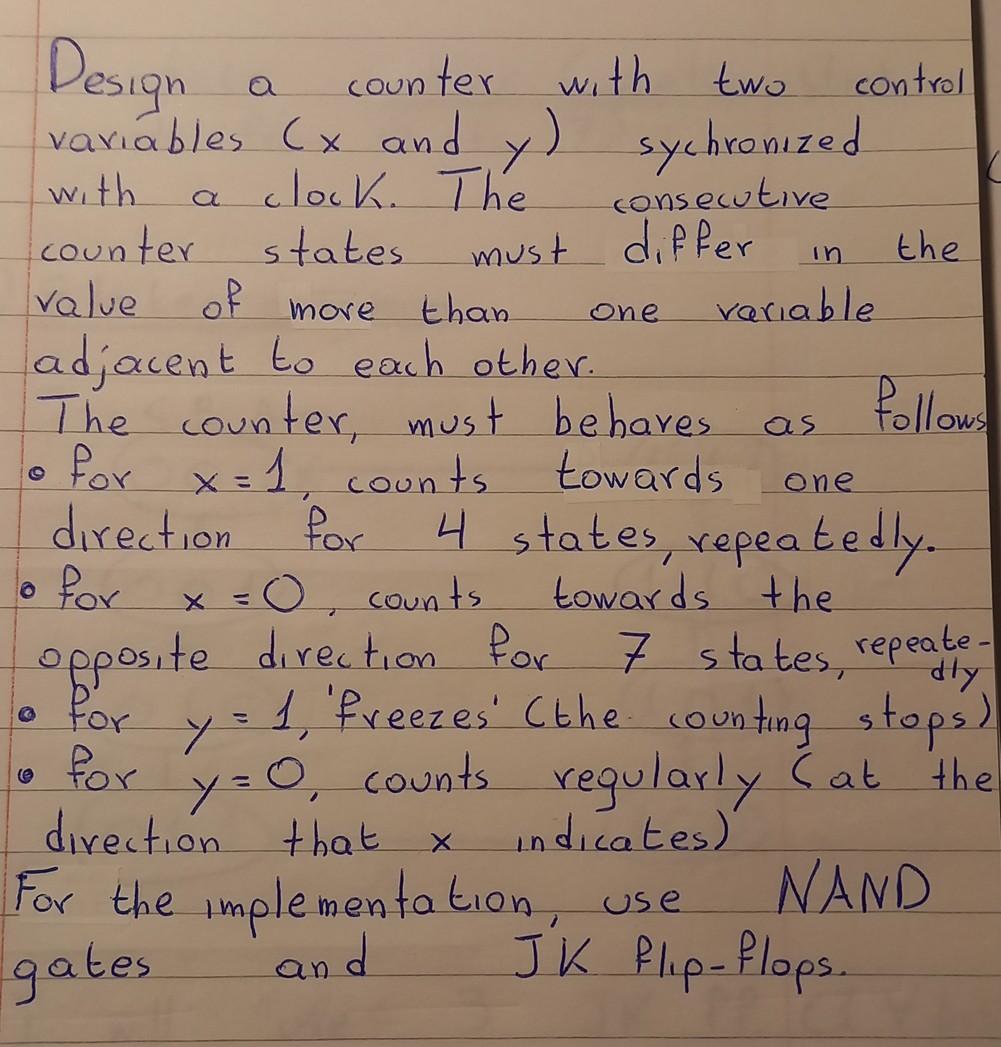 Design a counter with two control
variables (x and y) sychronized
with a clock. The consecutive
counter states must differ in the
value of more than one variable
adjacent to each other.
The counter, must behaves as follows
• for x = 1, counts towards one
direction for 4 states, repeatedly.
• for x = 0, counts towards the
opposite direction for 7 states, repeate-
dly
• for y = 1, 'freezes' (the counting stops)
• for y = 0, counts regularly (at the
direction that x indicates)
For the implementation, use NAND
gates and JK flip-flops.